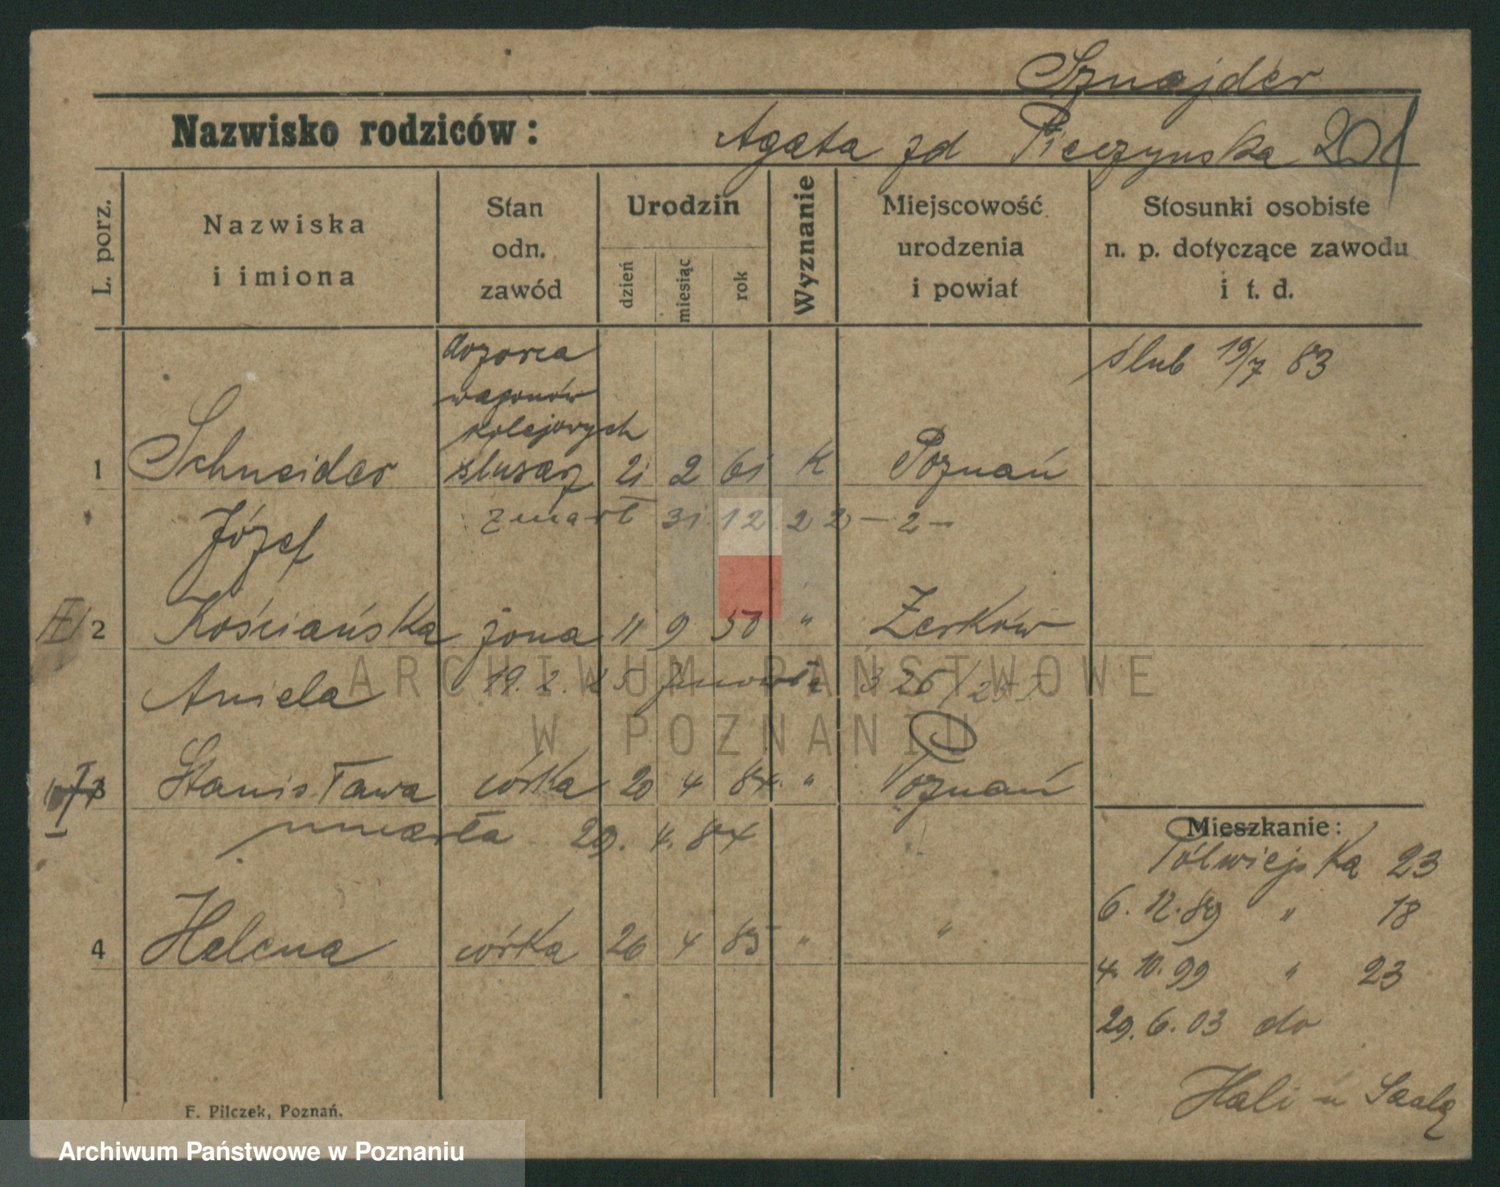 Sznajder
Nazwisko rodziców: Agata zd Pieczynska 201
L. porz.
Nazwiska
i imiona
Stan
odn.
zawód
Urodzin
dzień
miesiąc
rok
Wyznanie
Miejscowość
urodzenia
i powiat
Stosunki osobiste
n. p. dotyczące zawodu
i t. d.
dozorca
wagonów
kolejowych
ślub 19/7 83
1 Schneider ślusarz 21 2 61 K Poznań
Józef zmarł 31 12 22 - 2 -
2 Kościańska żona 11 9 50 " Żerków
Aniela 19. 2. 25
ARCHIWUM PAŃSTWOWE
W POZNANIU
3 Stanisława córka 20 4 84. " Poznań
umarła 29. 4. 84
Mieszkanie:
Półwiejska 23
6. 12. 89 " 18
4 Helena córka 26 4 85 " "
4. 10. 99 " 23
29. 6. 03 do
Hali n Saalą
F. Pilczek, Poznań.
Archiwum Państwowe w Poznaniu